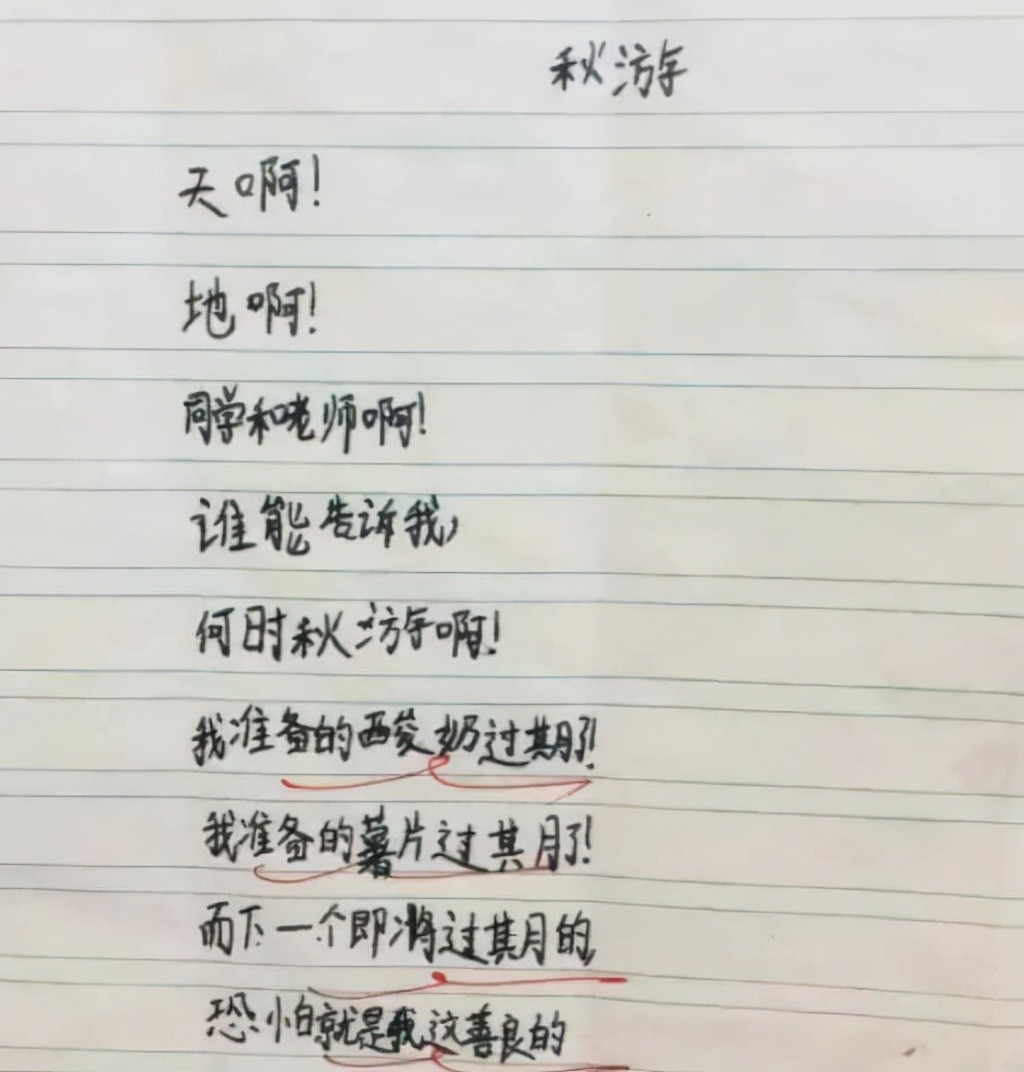 秋游
天啊！
地啊！
同学和老师啊！
谁能告诉我，
何时秋游啊！
我准备的酸奶过期了！
我准备的薯片过期了！
而下一个即将过期的，
恐怕就是我这善良的